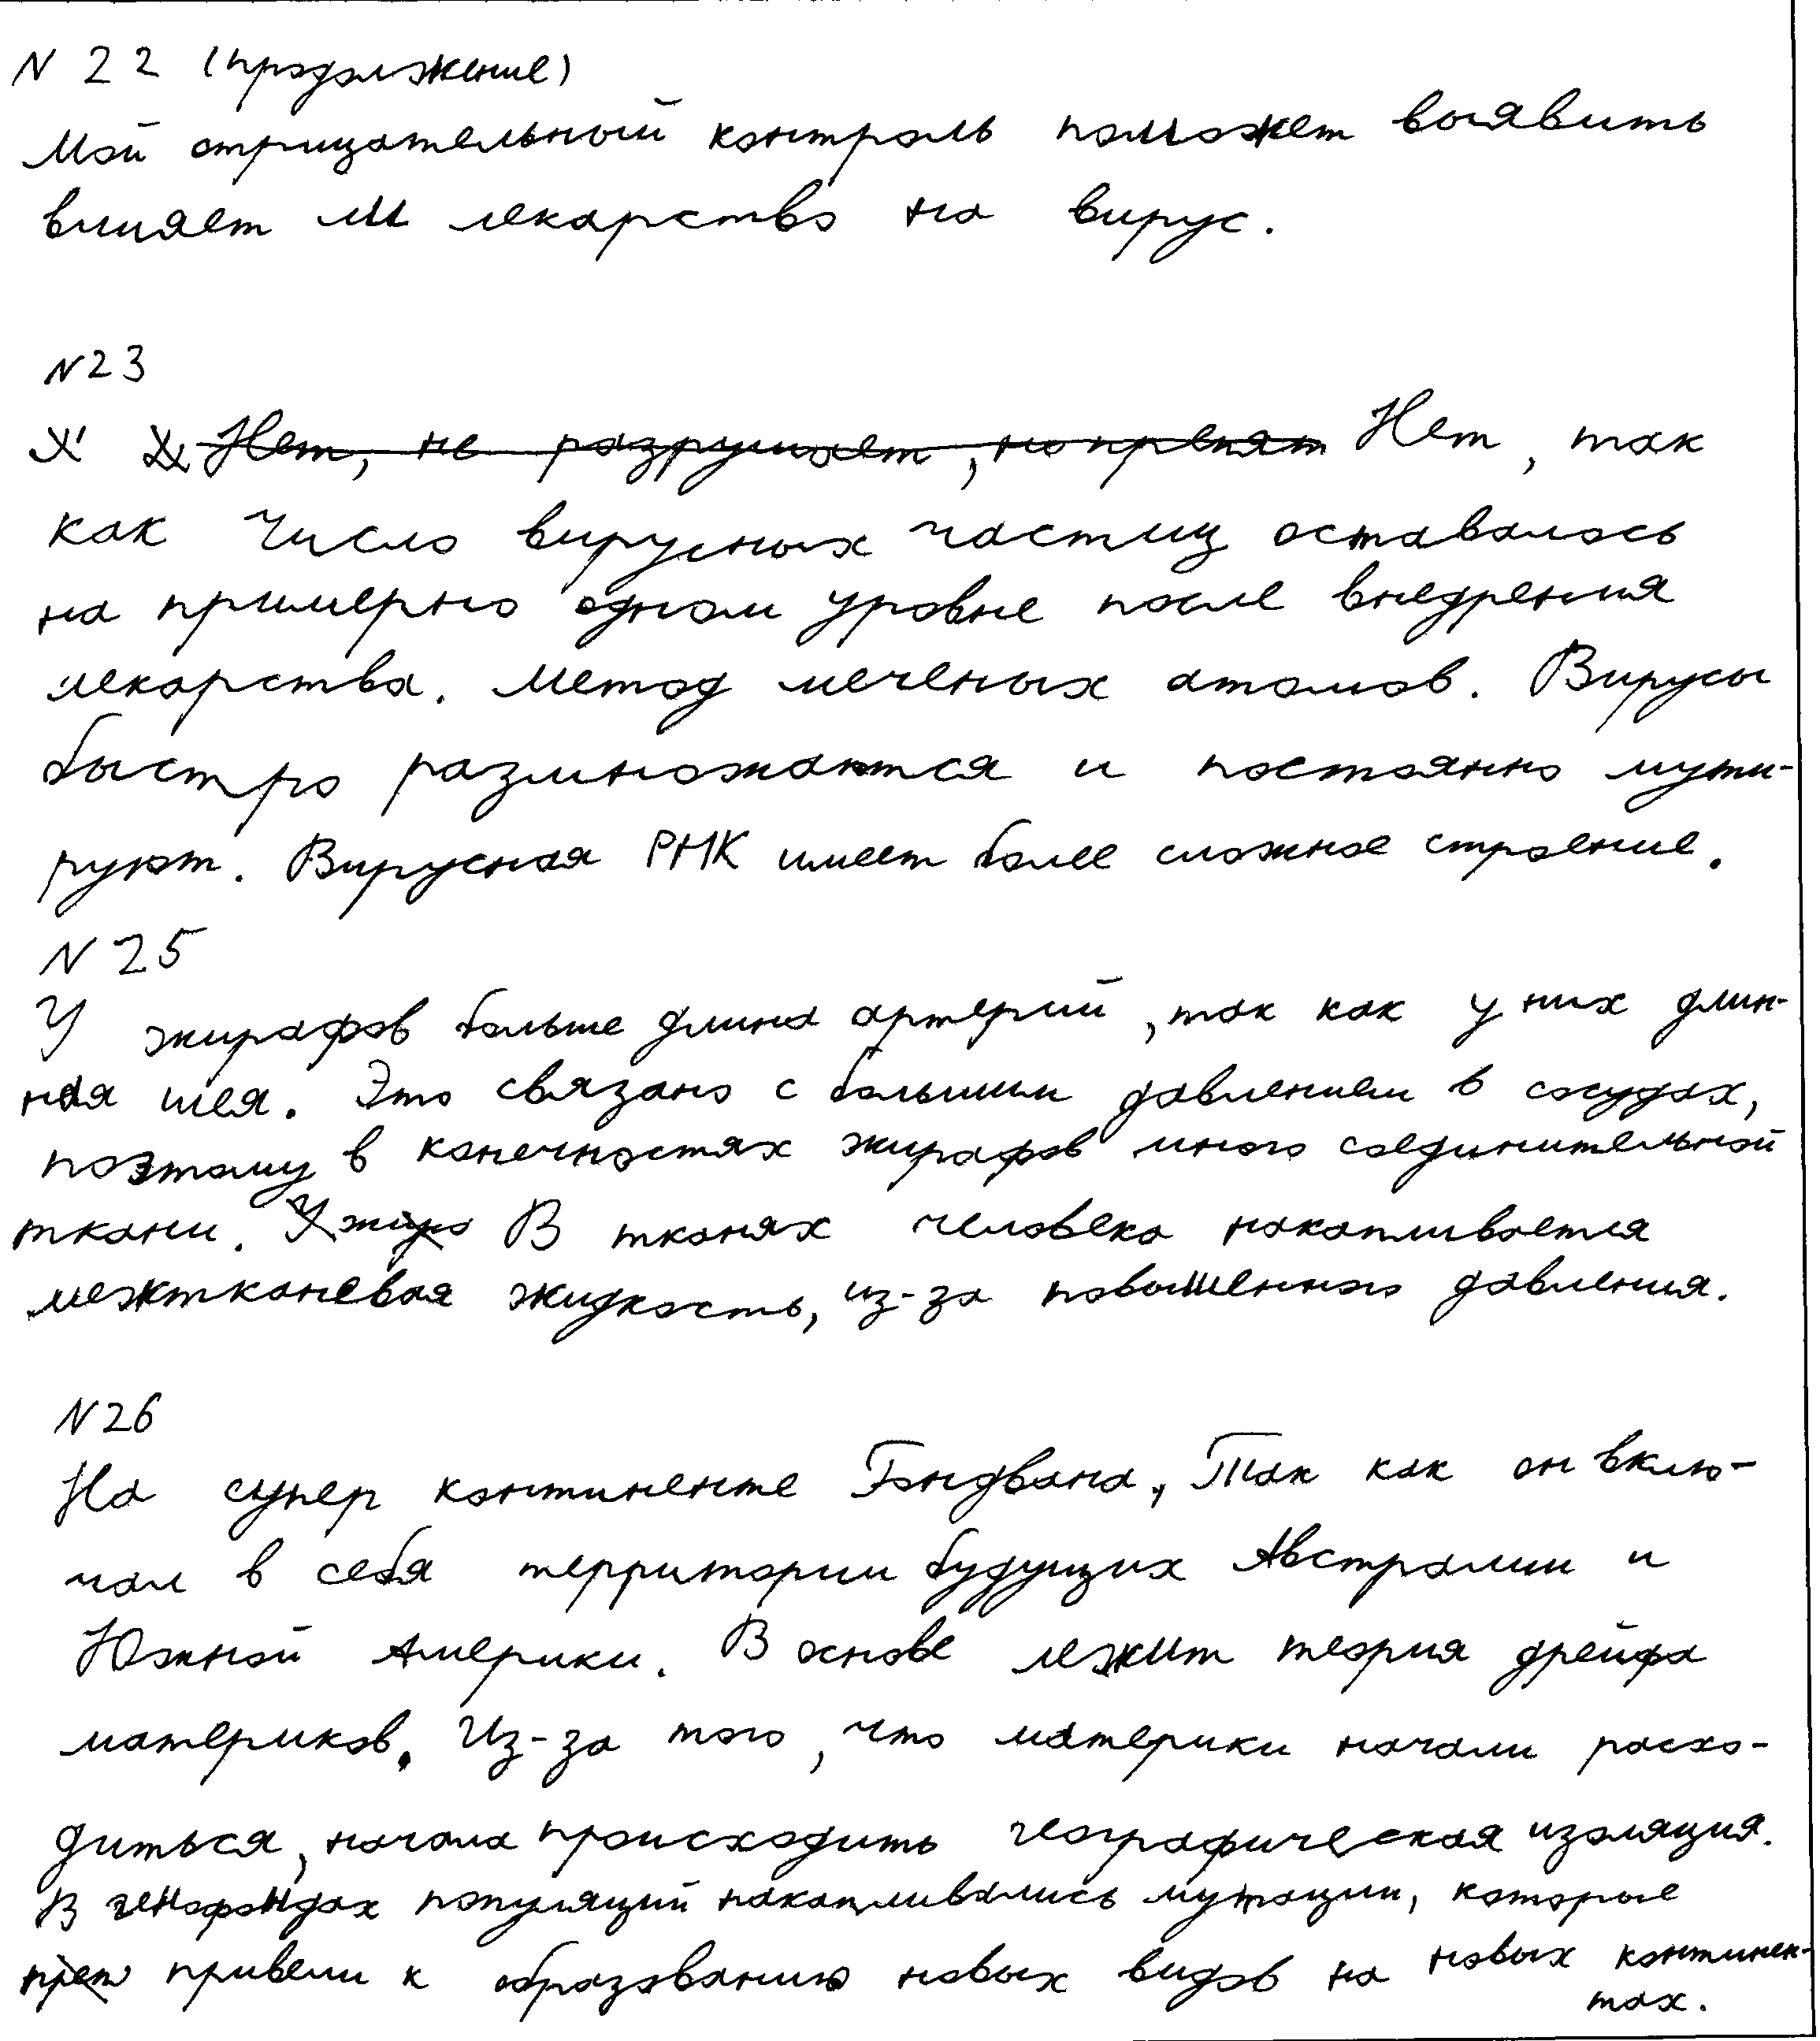 N 22 (продолжение)
Мой отрицательный контроль поможет выявить
влияет ли лекарство на вирус.
N23
Нет, не разрушает, но препят Нет, так
как число вирусных частиц оставалось
на примерно одном уровне после внедрения
лекарства. Метод меченых атомов. Вирусы
быстро размножаются и постоянно мути-
руют. Вирусная РНК имеет более сложное строение.
N 25
У жирафов больше длина артерий, так как у них длин-
ная шея. Это связано с большим давлением в сосудах,
поэтому в конечностях жирафов много соединительной
ткани. У жира В тканях человека накапливается
межтканевая жидкость, из-за повышенного давления.
N26
На супер континенте Гондвана, Так как он вклю-
чал в себя территории будущих Австралии и
Южной Америки. В основе лежит теория дрейфа
материков. Из-за того, что материки начали расхо-
диться, начала происходить географическая изоляция.
В генофондах популяций накапливались мутации, которые
привели к образованию новых видов на новых континен-
тах.